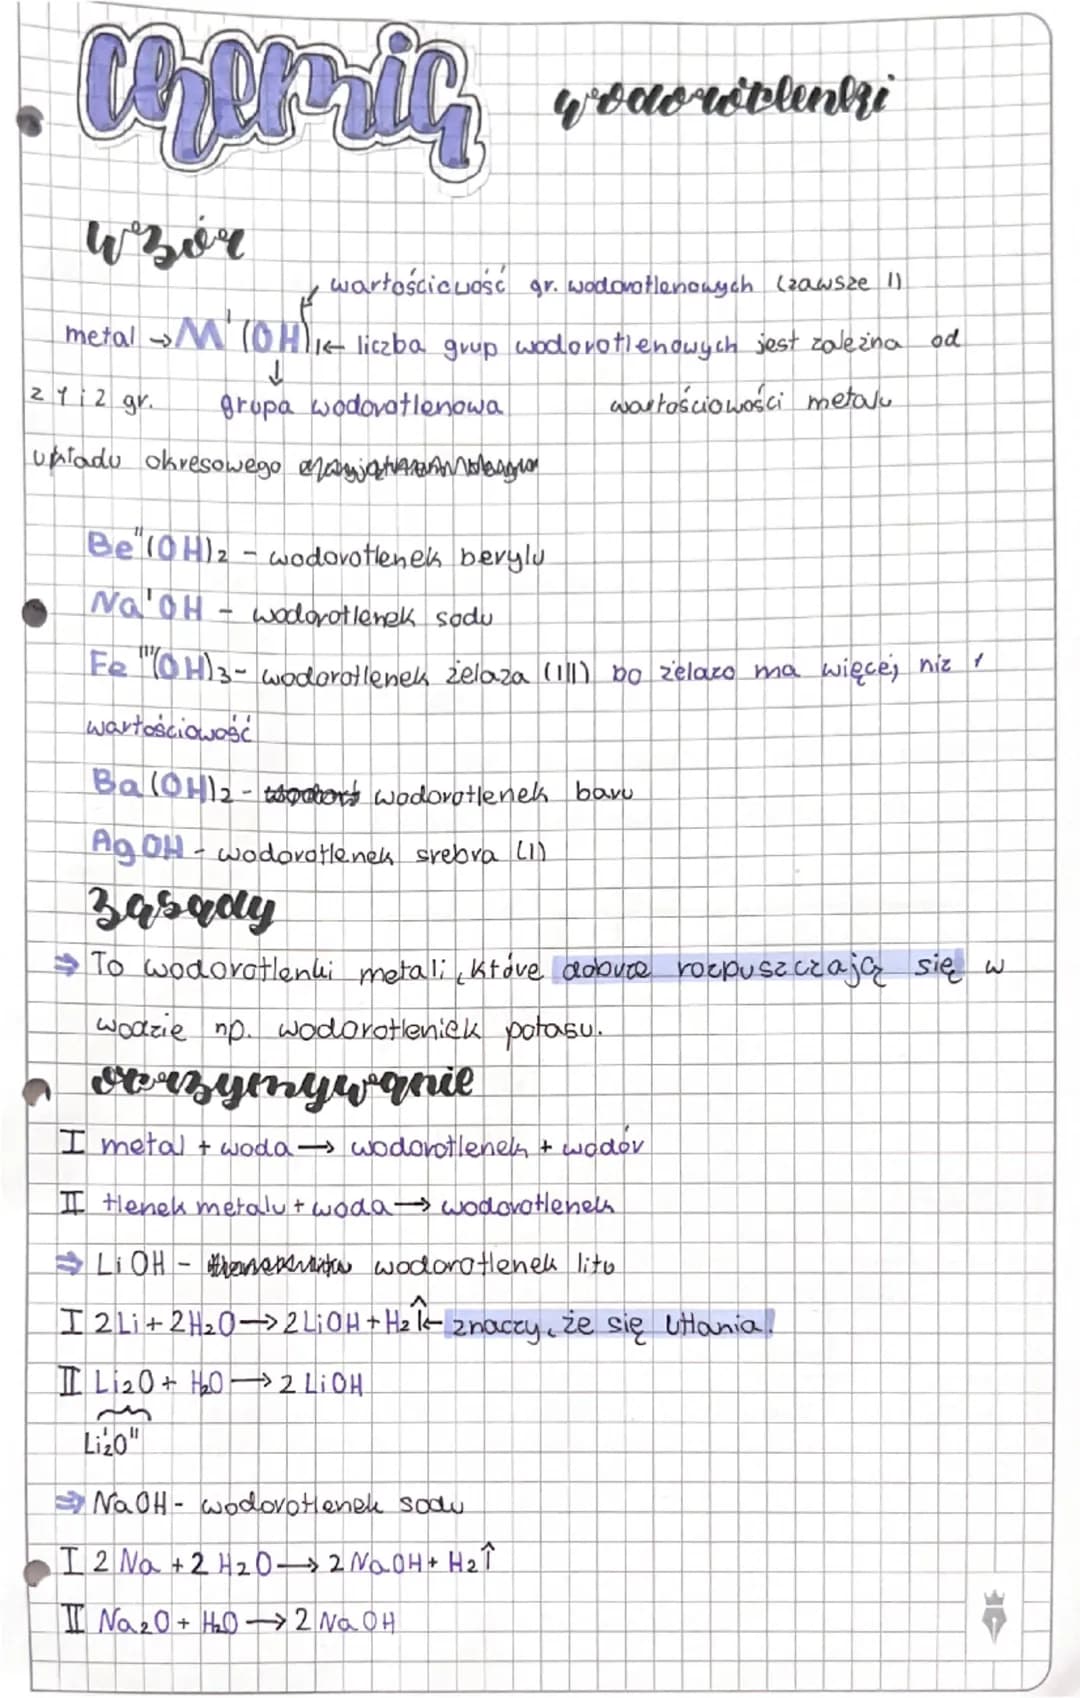 Chemia
wodorotlenki
wzór
wartościowość gr. wodorotlenowych (zawsze I)
metal → M^I (OH)I ← liczba grup wodorotlenowych jest zależna od
↓
z 1 i 2 gr. grupa wodorotlenowa wartościowości metalu
układu okresowego
Be^II(OH)2 - wodorotlenek berylu
Na^IOH - wodorotlenek sodu
Fe^III(OH)3 - wodorotlenek żelaza (III) bo żelazo ma więcej niż 1
wartościowość
Ba(OH)2 - wodorotlenek baru
AgOH - wodorotlenek srebra (I)
zasady
⇒ To wodorotlenki metali, które dobrze rozpuszczają się w
wodzie np. wodorotleniek potasu.
otrzymywanie
I metal + woda → wodorotlenek + wodór
II tlenek metalu + woda → wodorotlenek
⇒ LiOH - wodorotlenek litu
I 2Li + 2H2O → 2LiOH + H2↑ ← znaczy, że się utlania!
II Li2O + H2O → 2LiOH
Li^I2O^II
⇒ NaOH - wodorotlenek sodu
I 2Na + 2H2O → 2NaOH + H2↑
II Na2O + H2O → 2NaOH